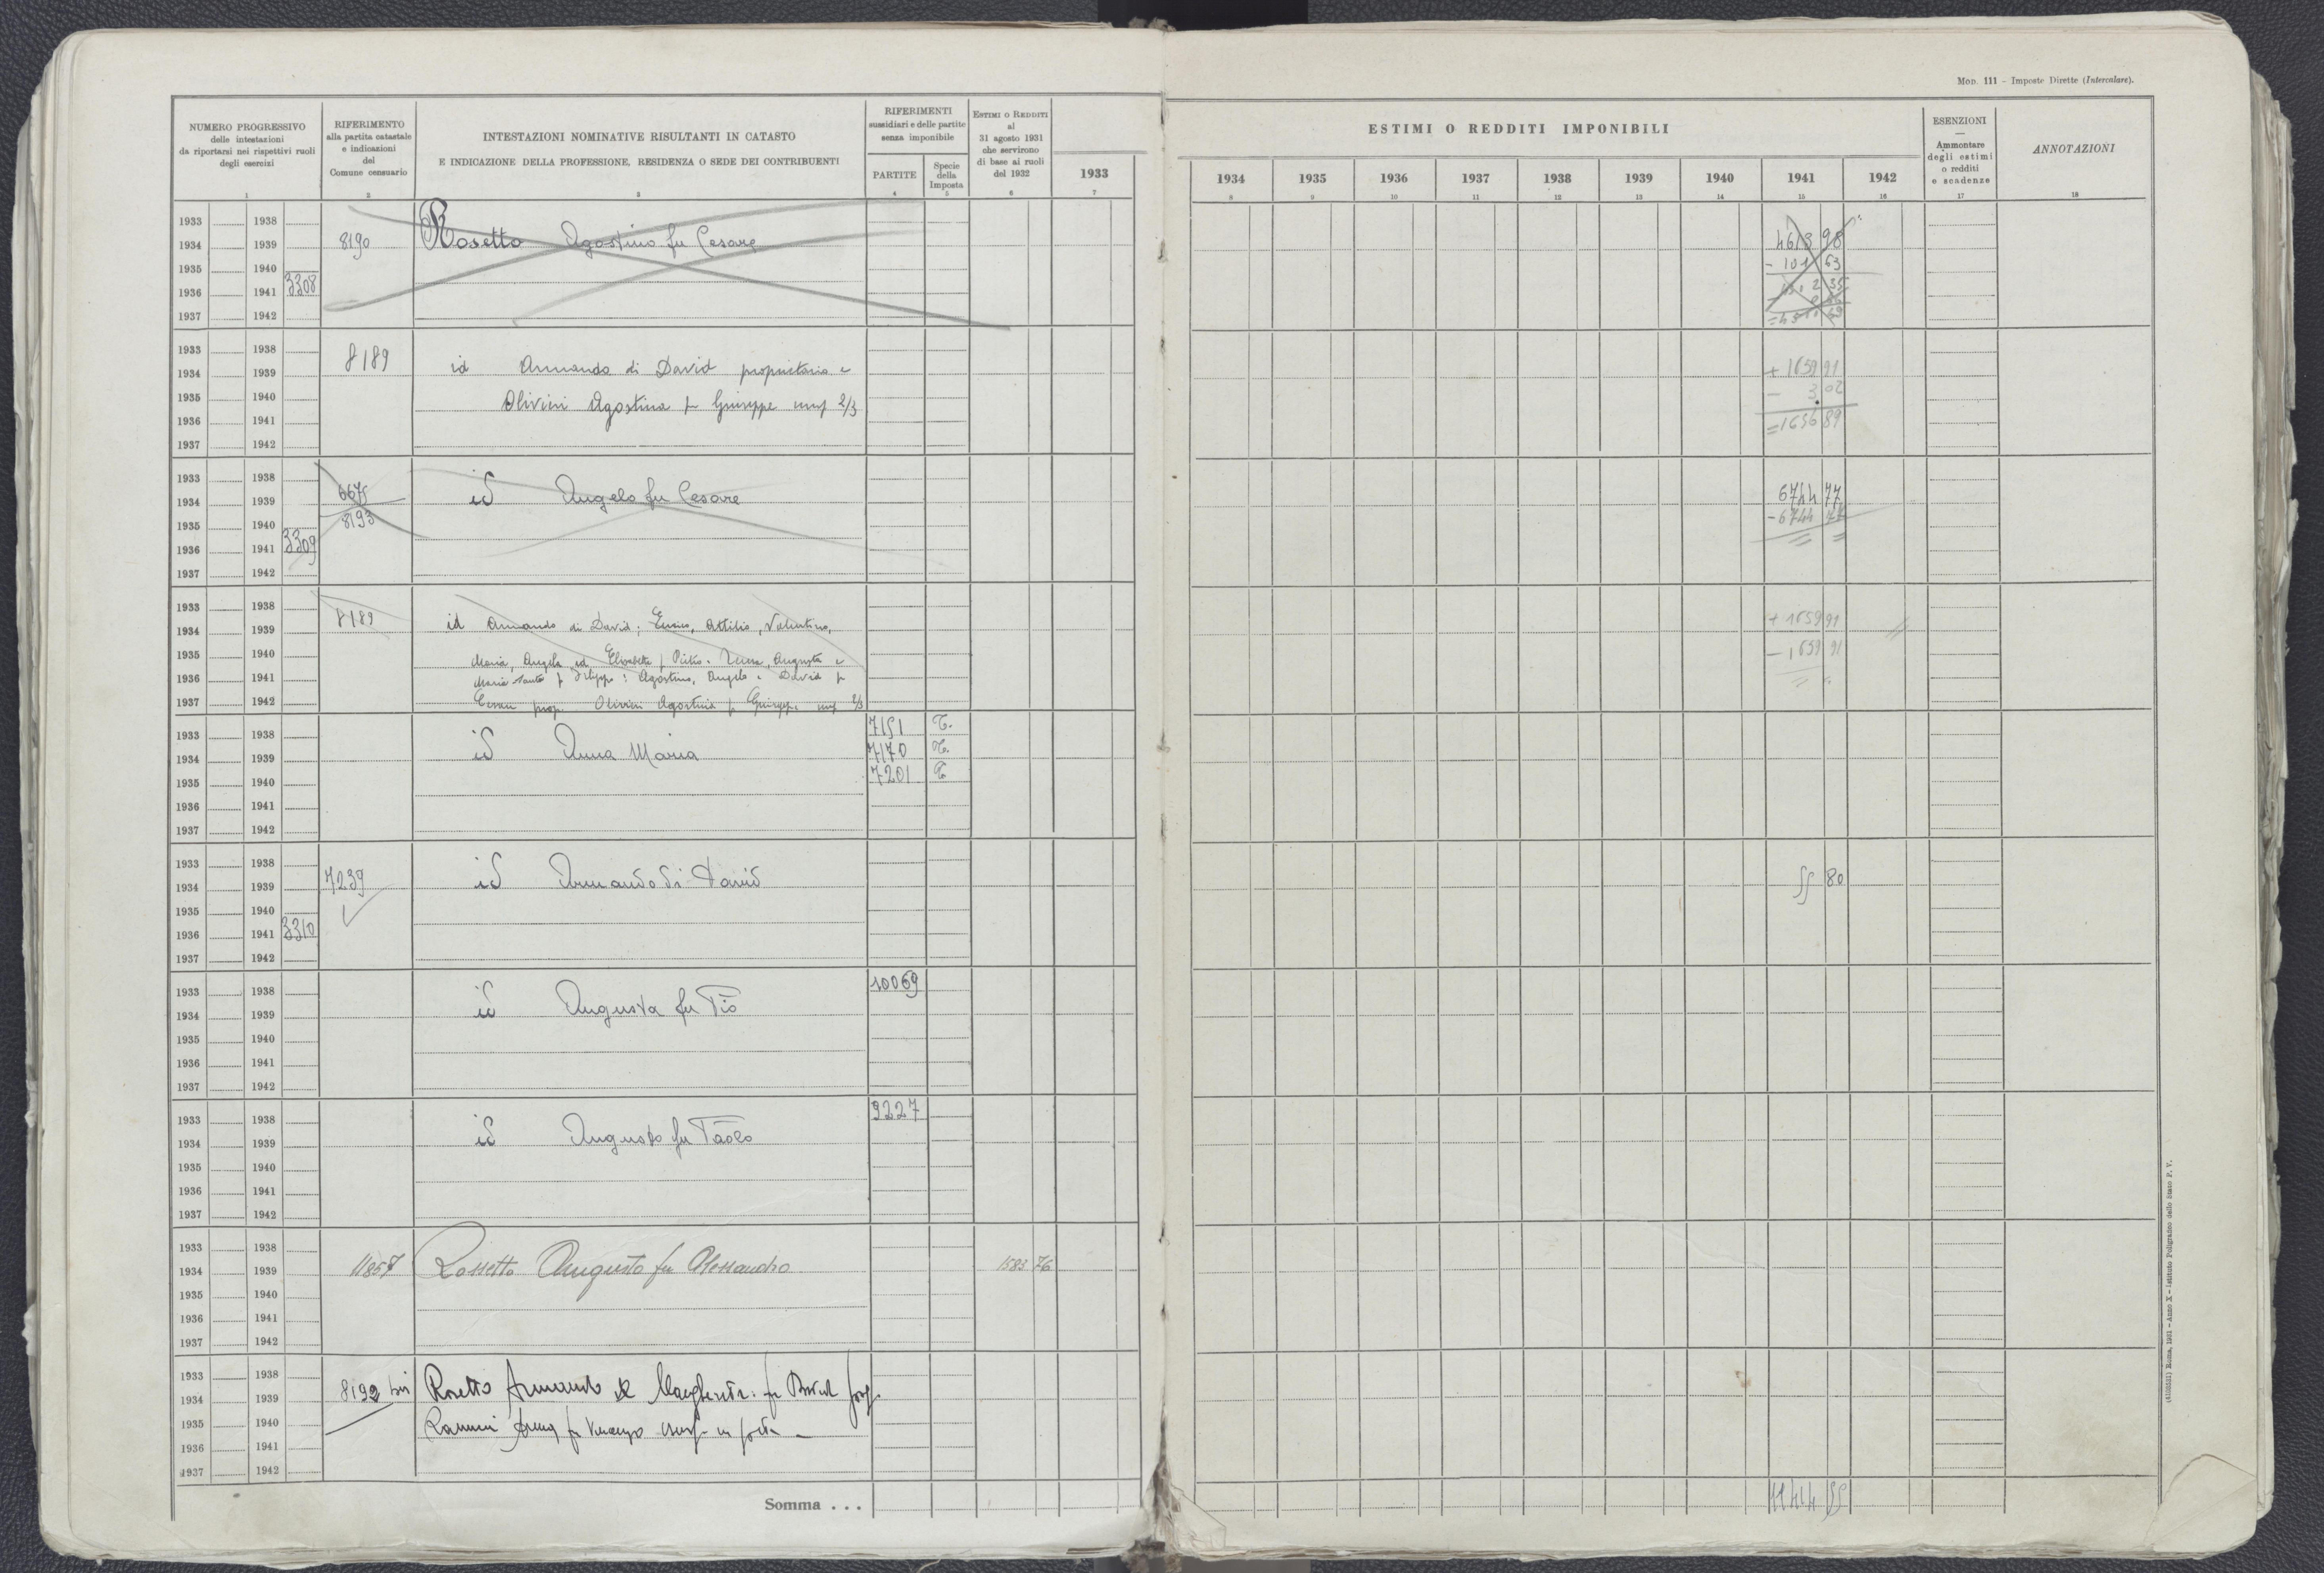 Mod. 111 - Imposte Dirette (Intercalare).
NUMERO PROGRESSIVO
delle intestazioni
da riportarsi nei rispettivi ruoli
degli esercizi
1
RIFERIMENTO
alla partita catastale
e indicazioni
del
Comune censuario
2
INTESTAZIONI NOMINATIVE RISULTANTI IN CATASTO
E INDICAZIONE DELLA PROFESSIONE, RESIDENZA O SEDE DEI CONTRIBUENTI
3
RIFERIMENTI
sussidiari e delle partite
senza imponibile
PARTITE
4
Specie
della
Imposta
5
ESTIMI O REDDITI
al
31 agosto 1931
che servirono
di base ai ruoli
del 1932
6
1933
7
ESTIMI O REDDITI IMPONIBILI
1934 1935 1936 1937 1938 1939 1940 1941 1942
8 9 10 11 12 13 14 15 16
ESENZIONI
—
Ammontare
degli estimi
o redditi
e scadenze
17
ANNOTAZIONI
18
1933 1938
1934 1939 8190 Rosetto Agostino fu Cesare 4613 98
1935 1940 - 101 63
1936 1941 3308
1937 1942
1933 1938
1934 1939 8189 id Armando di David proprietario e + 1659 91
1935 1940 Olivieri Agostina fu Giuseppe usuf 2/3 - 3 02
1936 1941 = 1656 89
1937 1942
1933 1938
1934 1939 6675 id Angelo fu Cesare 6744 77
1935 1940 8193 - 6744 77
1936 1941 3309
1937 1942
1933 1938
1934 1939 8189 id Armando di David; Attilio, Valentino, + 1659 91
1935 1940 Maria, Angela ed Elisabetta f Pietro. Augusta e - 1659 91
1936 1941 Maria f Filippo: Agostino, Angelo e David f
1937 1942 Cesare prop. Olivieri Agostina f Giuseppe usuf 2/3
1933 1938 7151 T.
1934 1939 id Anna Maria 7170 T.
1935 1940 7201 T
1936 1941
1937 1942
1933 1938
1934 1939 7239 id Armando di David 55 80
1935 1940
1936 1941 3310
1937 1942
1933 1938 10069
1934 1939 id Augusta fu Pio
1935 1940
1936 1941
1937 1942
1933 1938 9227
1934 1939 id Augusto fu Paolo
1935 1940
1936 1941
1937 1942
1933 1938
1934 1939 11857 Rossetto Augusto fu Alessandro 1583 76
1935 1940
1936 1941
1937 1942
1933 1938
1934 1939 8192 bis Rosetto Armando & Margherita fu David prop.
1935 1940 fu Vincenzo usuf in parte
1936 1941
1937 1942
Somma . . . 11414 55
(4103551) Roma, 1931 - Anno X - Istituto Poligrafico dello Stato P. V.